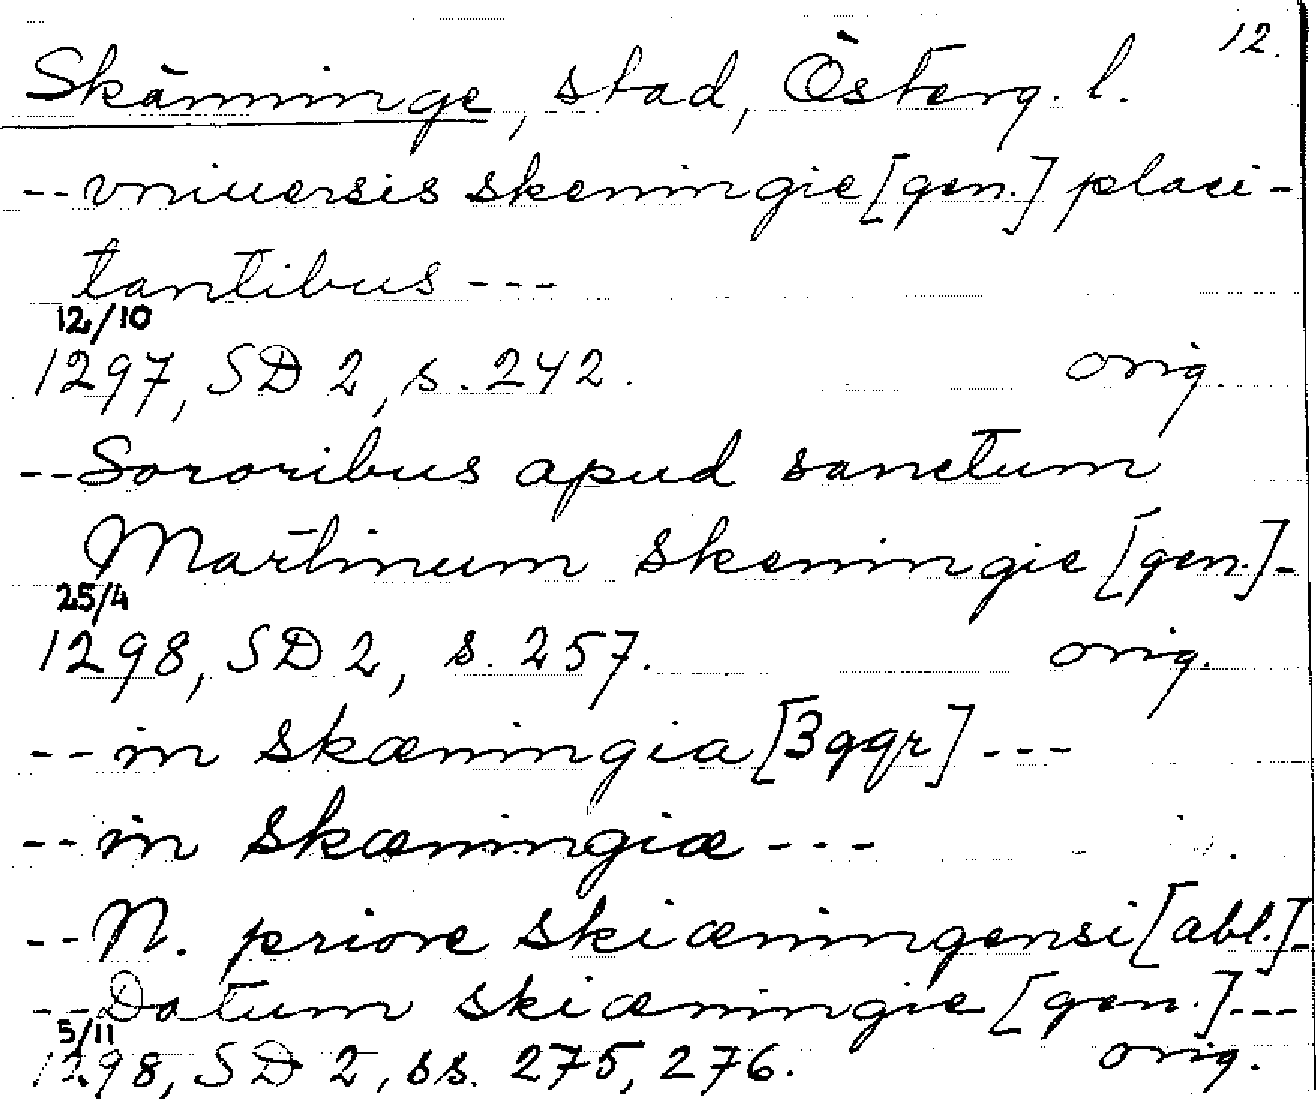 12.
Skänninge, stad, Österg. l.
--vniuersis skeningie [gen.] placi-
tantibus ---
12/10
1297, SD 2, s. 242. orig.
--Sororibus apud sanctum
Martinum skeningie [gen.]-
25/4
1298, SD 2, s. 257. orig.
--in skæningia [3 ggr] ---
--in skæningiæ ---
--N. priore skiæningensi [abl.]-
--Datum skiæningie [gen.]---
5/11
1298, SD 2, ss. 275, 276. orig.